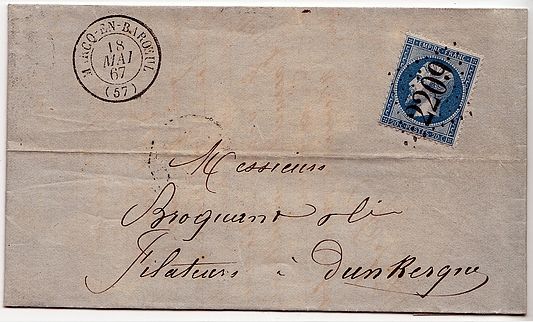 MARCQ-EN-BAROEUL
18
MAI
67
(57)
EMPIRE FRANC
2209
20 C POSTES 20 C
Messieurs
Filateurs à Dunkerque